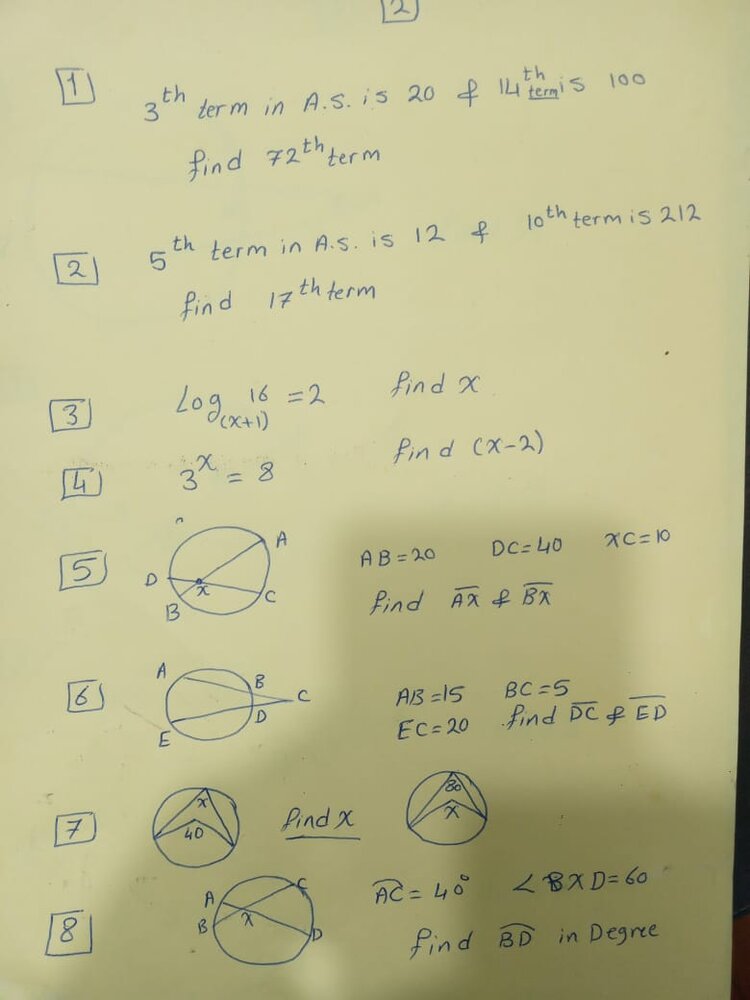 2
1 3th term in A.S. is 20 & 14th term is 100
find 72th term
2 5th term in A.s. is 12 & 10th term is 212
find 17th term
3 Log(x+1) 16 = 2 find x
4 3^x = 8 find (x-2)
5 A D x B C AB=20 DC=40 XC=10
find AX & BX
6 A B C D E AB=15 BC=5
EC=20 find DC & ED
7 x 40 find x 80 x
8 A C B x D AC=40° <BXD=60
find BD in Degree